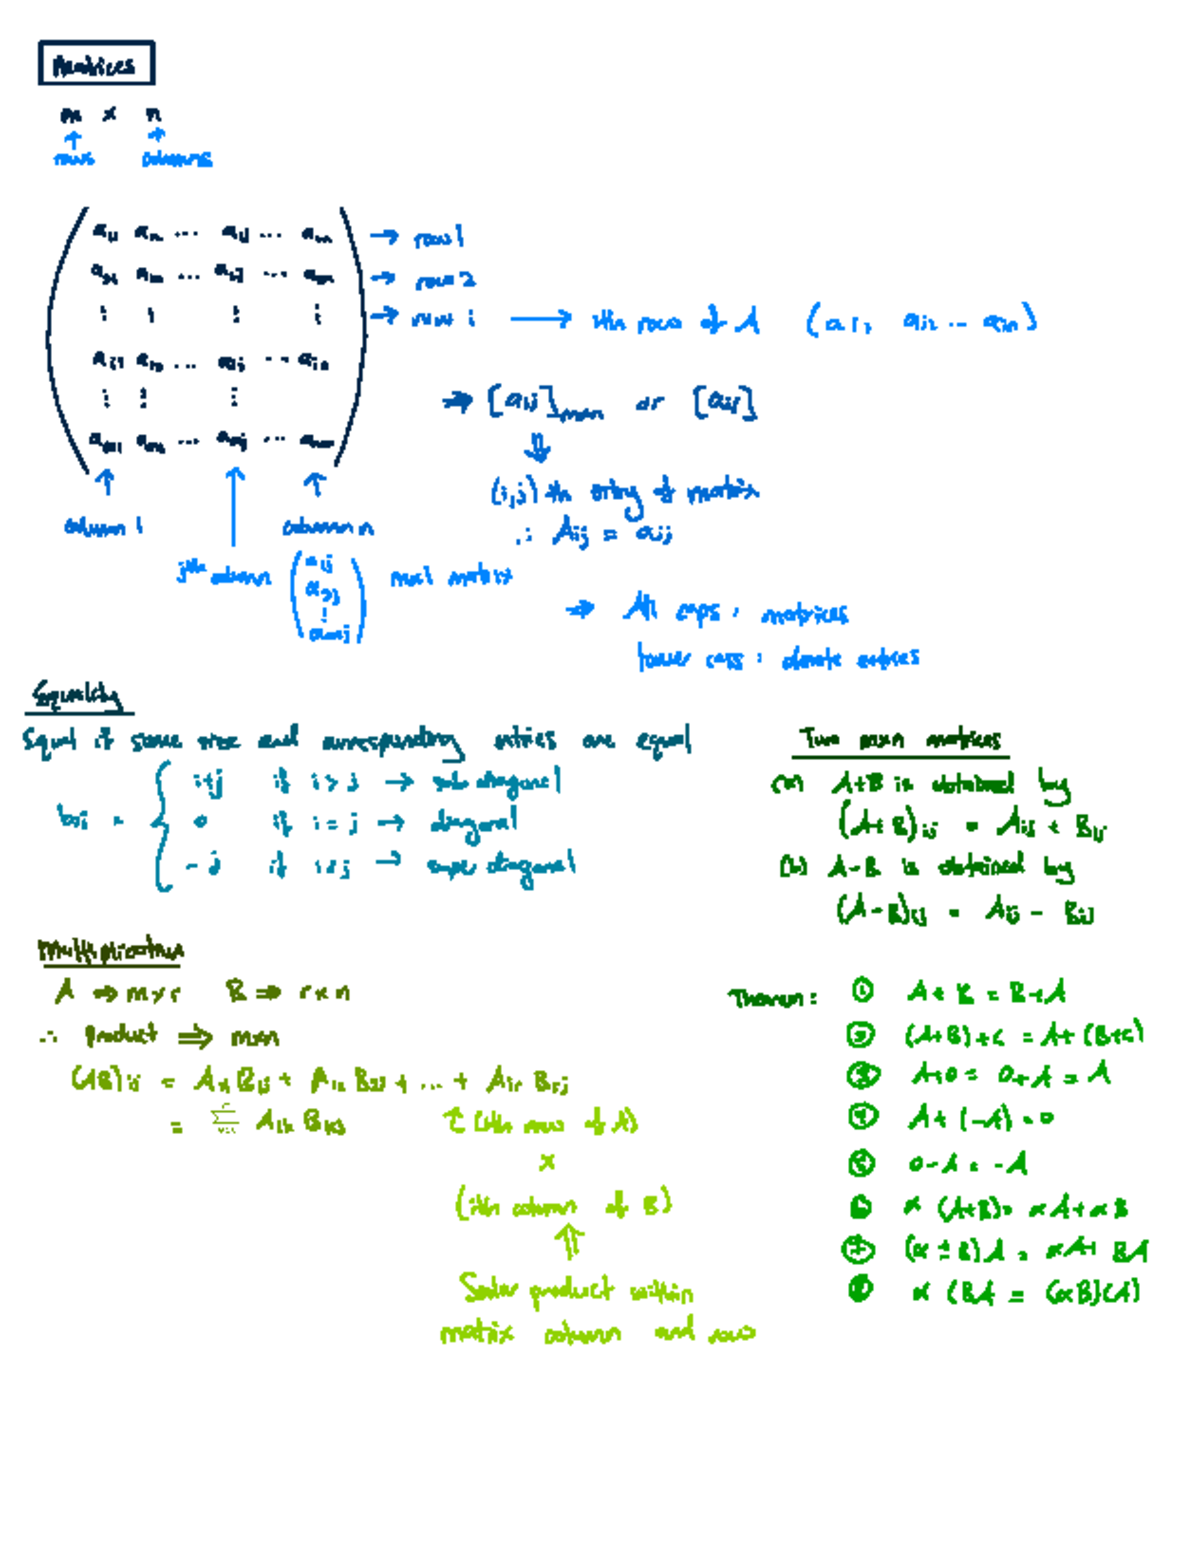 Matrices
m x n
↑ ↑
rows columns
a11 a12 ... a1j ... a1n → row 1
a21 a22 ... a2j ... a2n → row 2
⋮ ⋮ ⋮ ⋮ → row i → ith row of A (ai1, ai2 ... ain)
ai1 ai2 ... aij ... ain
⋮ ⋮ ⋮
am1 am2 ... amj ... amn
⇒ [aij]mxn or [aij]
(i,j) th entry of matrix
∴ Aij = aij
column 1 column n
jth column (a1j a2j ⋮ amj) mx1 matrix
⇒ All caps : matrices
lower case : denote entries
Equality
Equal if same size and corresponding entries are equal
i+j if i > j → sub diagonal
0 if i = j → diagonal
- j if i < j → super diagonal
Two mxn matrices
(a) A+B is obtained by
(A+B)ij = Aij + Bij
(b) A-B is obtained by
(A-B)ij = Aij - Bij
Multiplication
A ⇒ m x r B ⇒ r x n
∴ product ⇒ mxn
(AB)ij = Ai1 B1j + Ai2 B2j + ... + Air Brj
= Σ Aik Bkj
↑ (ith row of A)
x
(ith column of B)
Scalar product within
matrix column and rows
Theorem : ① A + B = B + A
② (A+B)+C = A+ (B+C)
③ A+0 = 0+A = A
④ A + (-A) = 0
⑤ 0-A = -A
⑥ α (A+B) = αA + αB
⑦ (α ± B)A = αA + BA
⑧ α (BA = (αB)(A)